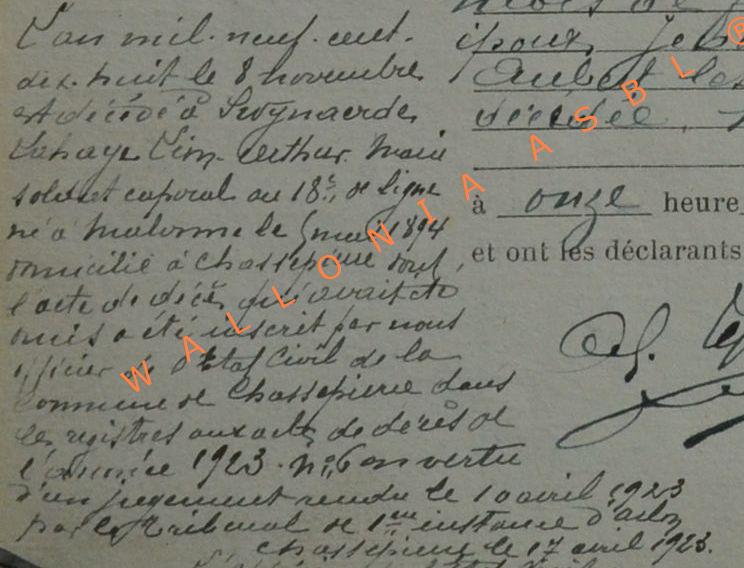 L'an mil. neuf. cent.
dix. huit le 8 novembre
est décédé à Swynaerde,
Lahaye Léon. Arthur. Marie
soldat caporal au 18e de Ligne
né à Malonne le 5 mai 1894
domicilié à Chassepierre dont
l'acte de décès qui avait été
omis a été inscrit par nous
officier de l'Etat Civil de la
Commune de Chassepierre dans
les registres aux actes de décès de
l'année 1923. n° 6 en vertu
d'un jugement rendu le 10 avril 1923
par le Tribunal de 1ère instance d'Arlon
Chassepierre le 17 avril 1923.
époux
décédée,
à onze heure
et ont les déclarants
WALLONIA ASBL ®